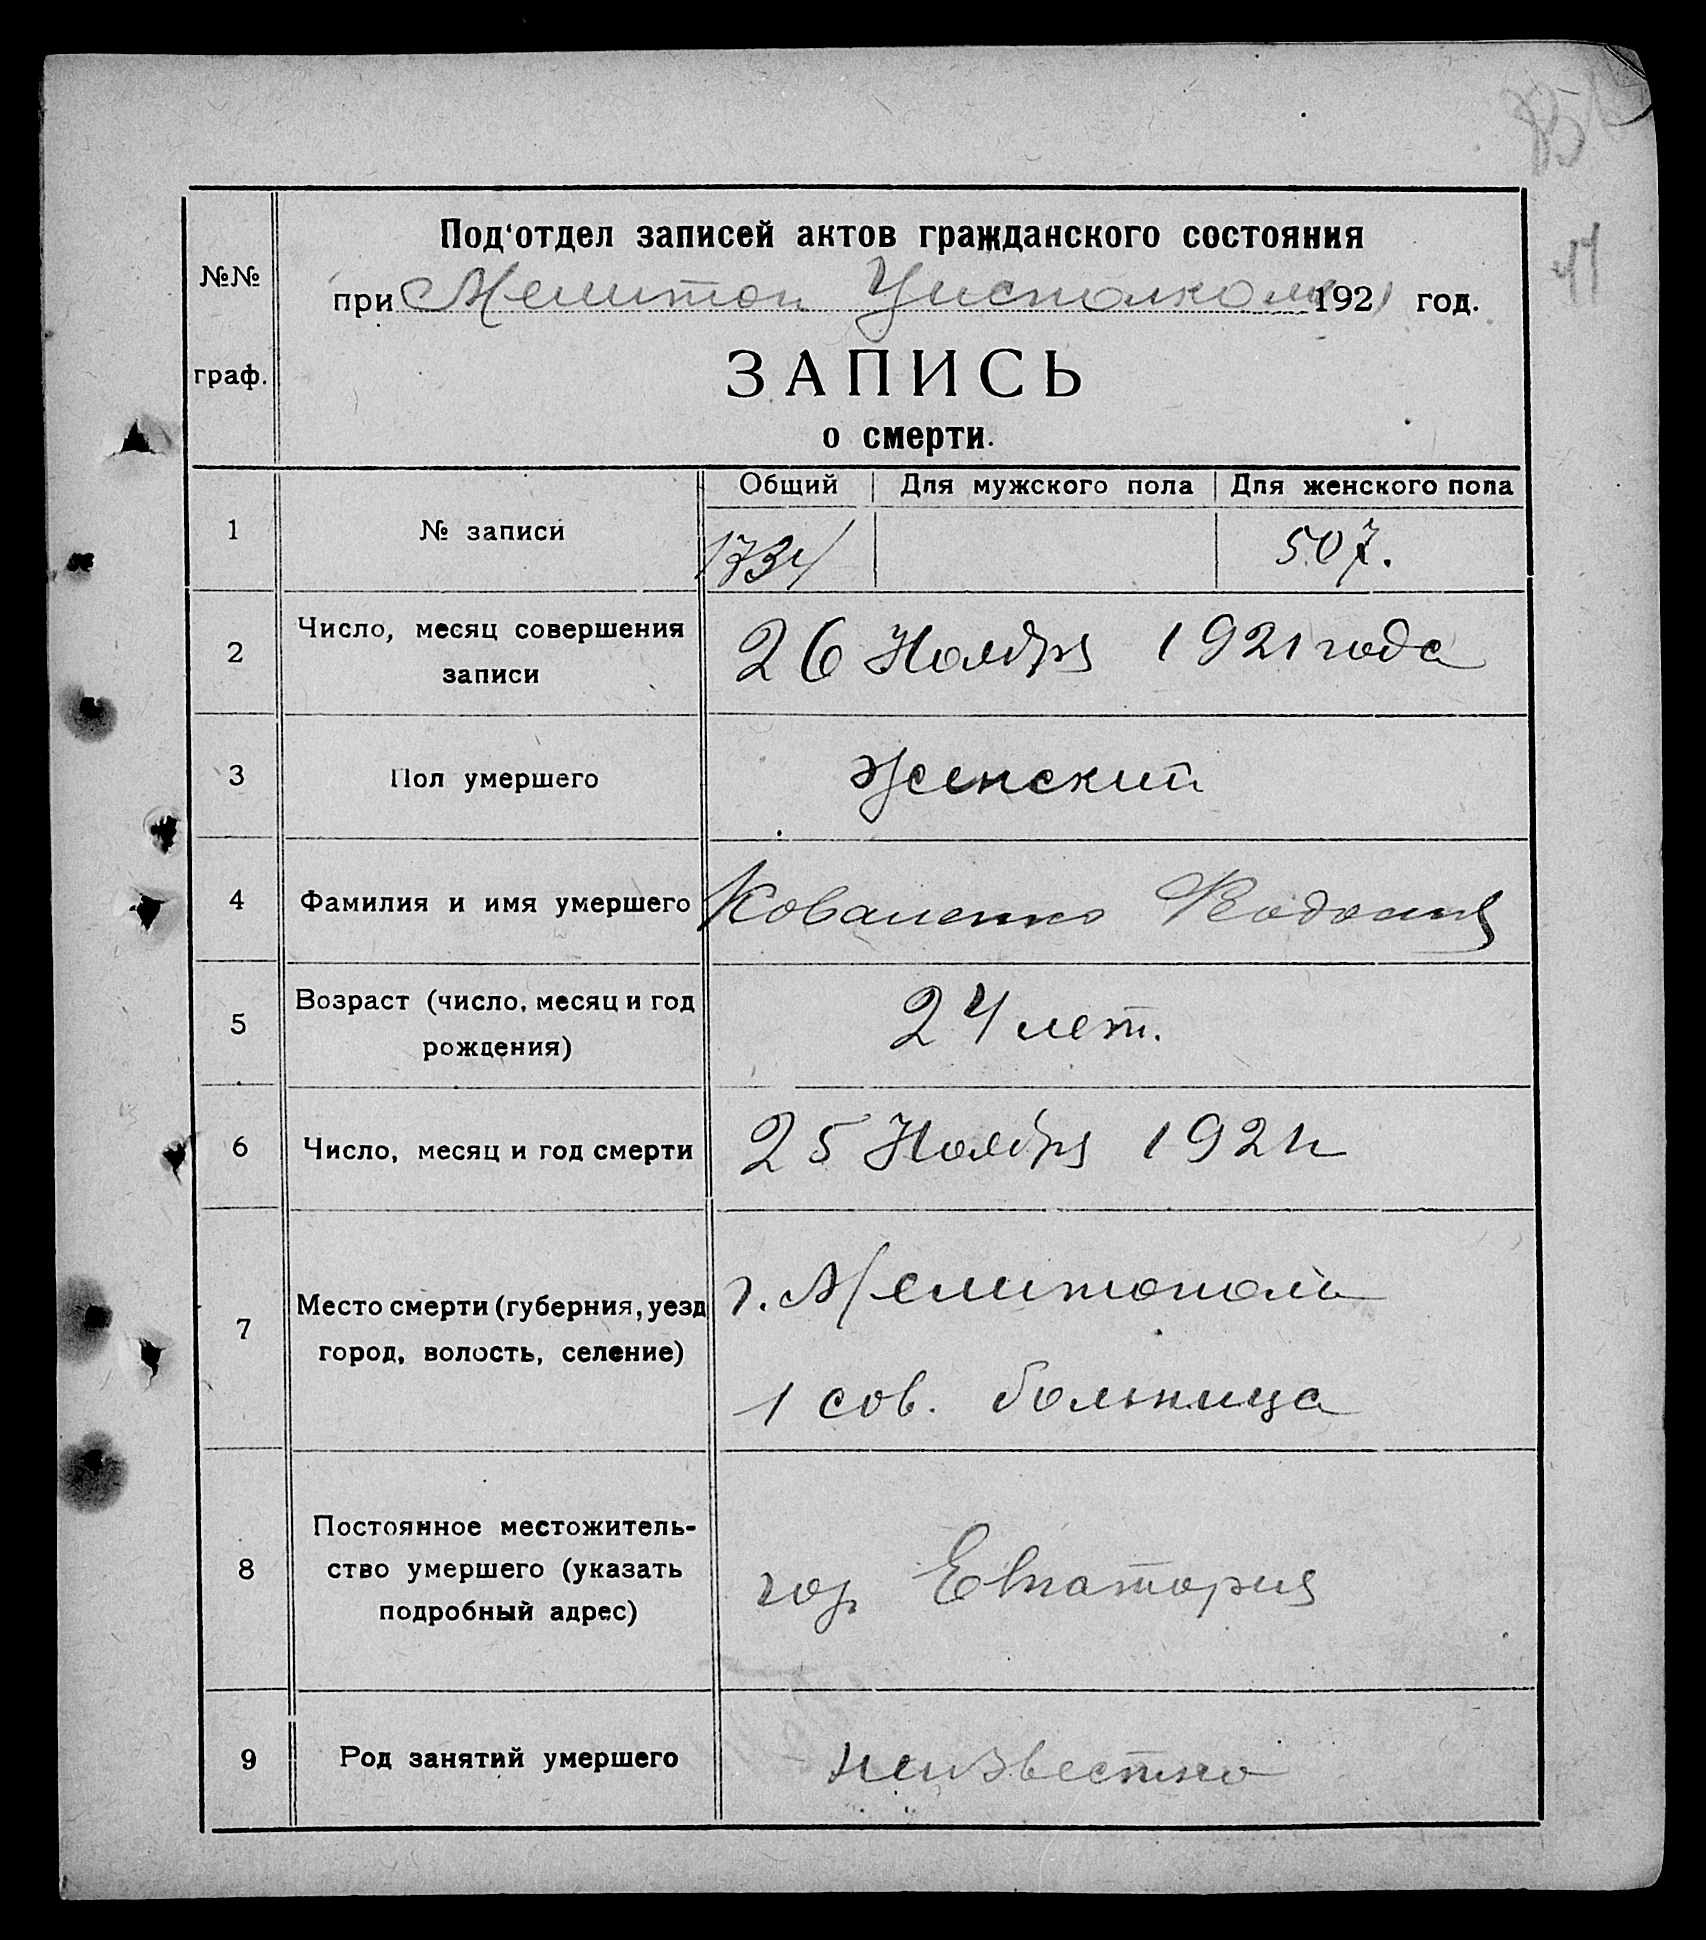 41
№№
граф.
Под'отдел записей актов гражданского состояния
при Мелитоп. Уисполкоме 1921 год.
ЗАПИСЬ
о смерти.
Общий Для мужского пола Для женского пола
1 № записи 1734 507.
2 Число, месяц совершения
записи
26 Ноября 1921 года
3 Пол умершего женский
4 Фамилия и имя умершего Коваленко Феодосия
5 Возраст (число, месяц и год
рождения)
24 лет.
6 Число, месяц и год смерти 25 Ноября 1921 г
7 Место смерти (губерния, уезд
город, волость, селение)
г. Мелитополь
1 сов. больница
8 Постоянное местожитель-
ство умершего (указать
подробный адрес)
гор. Евпатория
9 Род занятий умершего неизвестно